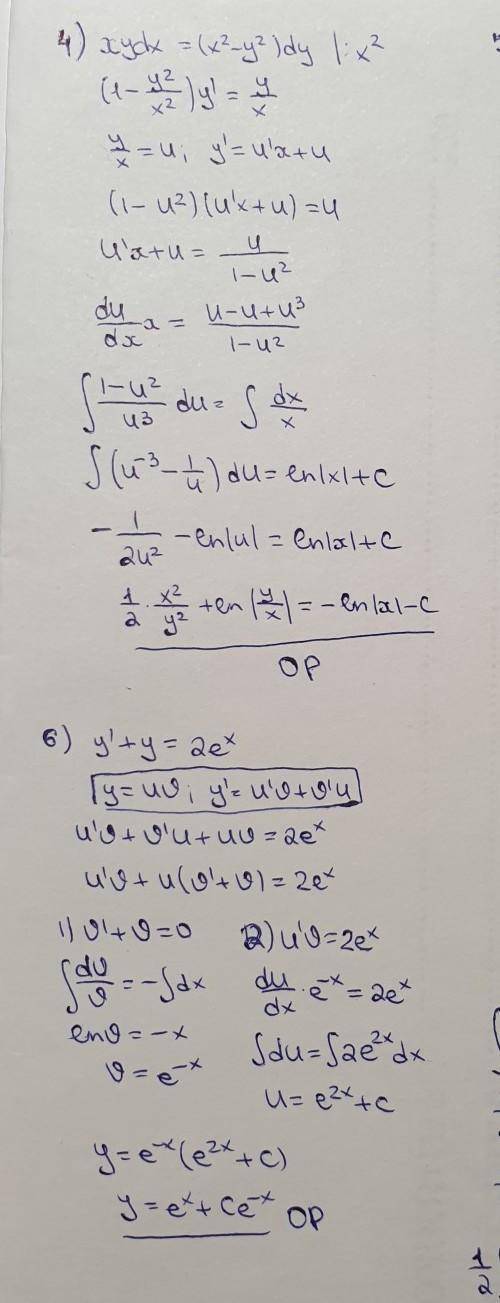 4) xydx = (x²-y²)dy |:x²
(1 - y²/x²)y' = y/x
y/x = u; y' = u'x+u
(1-u²)(u'x+u) = u
u'x+u = u/(1-u²)
du/dx x = (u-u+u³)/(1-u²)
∫ (1-u²)/u³ du = ∫ dx/x
∫(u⁻³ - 1/u)du = ln|x|+c
- 1/(2u²) - ln|u| = ln|x|+c
1/2 · x²/y² + ln|y/x| = -ln|x|-c
OP
6) y'+y = 2eˣ
y=uϑ; y'=u'ϑ+ϑ'u
u'ϑ+ϑ'u+uϑ=2eˣ
u'ϑ+u(ϑ'+ϑ)=2eˣ
1) ϑ'+ϑ=0
∫ dϑ/ϑ = -∫dx
lnϑ = -x
ϑ = e⁻ˣ
2) u'ϑ=2eˣ
du/dx · e⁻ˣ = 2eˣ
∫du = ∫2e²ˣdx
u = e²ˣ+c
y = e⁻ˣ(e²ˣ+c)
y = eˣ+ce⁻ˣ OP
1/2